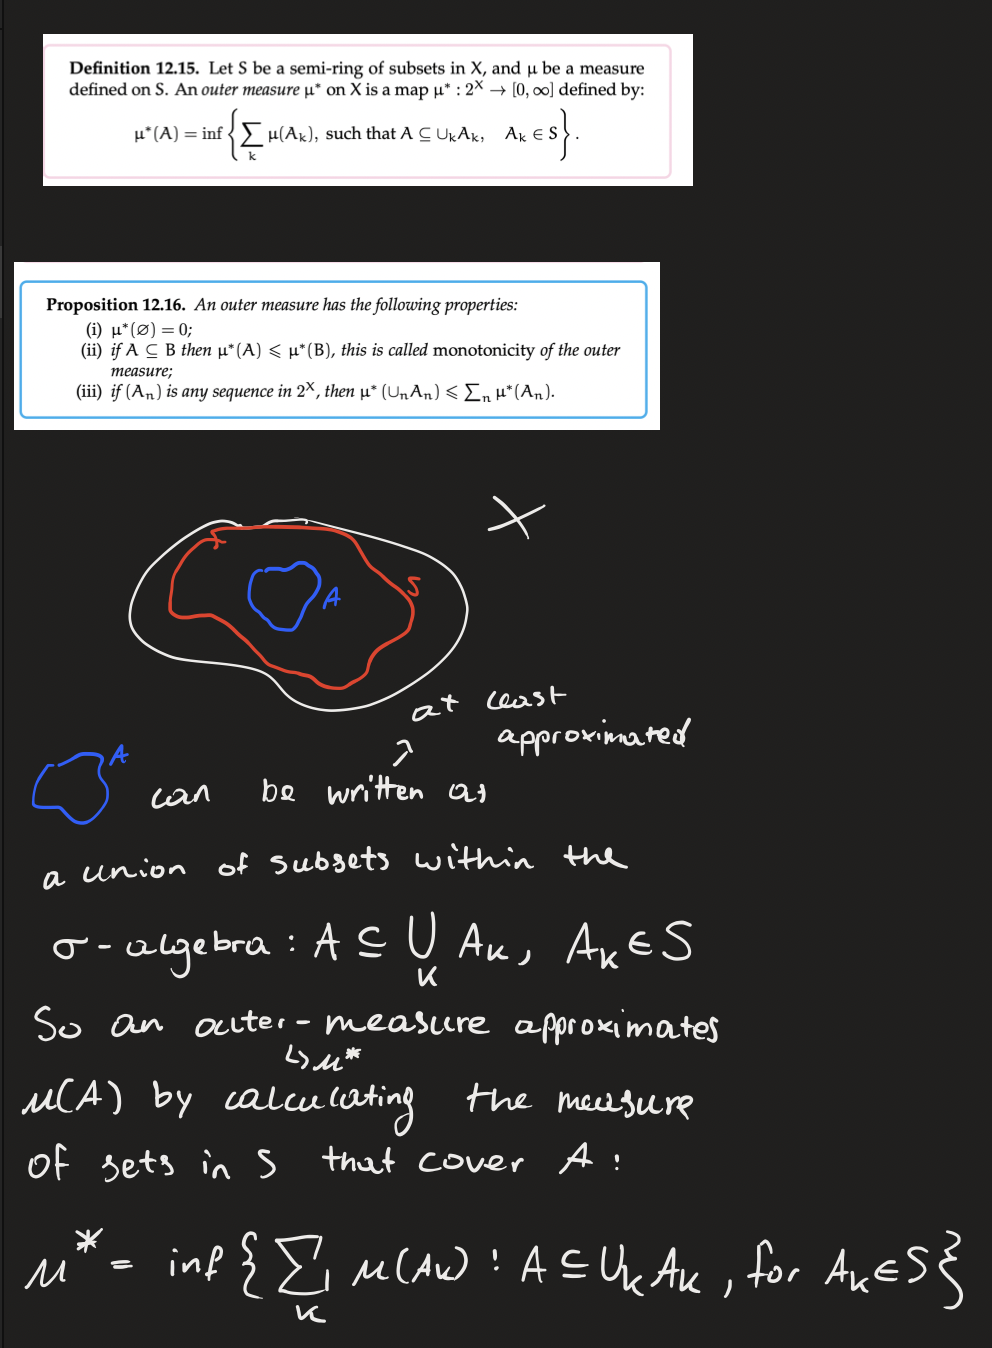 Definition 12.15. Let S be a semi-ring of subsets in X, and μ be a measure
defined on S. An outer measure μ* on X is a map μ* : 2^X → [0, ∞] defined by:
μ*(A) = inf { ∑_k μ(A_k), such that A ⊆ ∪_k A_k, A_k ∈ S } .
Proposition 12.16. An outer measure has the following properties:
(i) μ*(∅) = 0;
(ii) if A ⊆ B then μ*(A) ⩽ μ*(B), this is called monotonicity of the outer
measure;
(iii) if (A_n) is any sequence in 2^X, then μ* (∪_n A_n) ⩽ ∑_n μ*(A_n).
X
S
A
at least
approximated
A
can be written as
a union of subsets within the
σ-algebra : A ⊆ ⋃_K A_K, A_K ∈ S
So an outer-measure approximates
↳ μ*
μ(A) by calculating the measure
of sets in S that cover A :
μ* = inf { ∑_K μ(A_K) : A ⊆ ∪_K A_K, for A_K ∈ S }